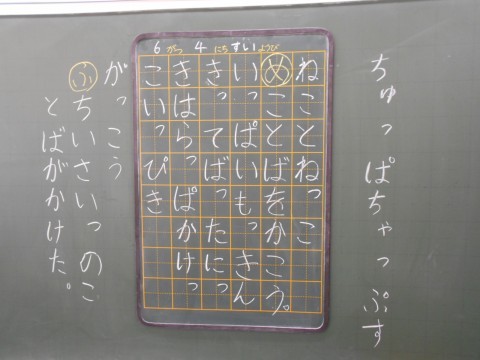 ちゅっ ぱちゃっ ぷす
6がつ 4にち すいようび
ねことねっこ
めことばをかこう。
いっぱいもっきん
きってばったにっ
きはらっぱかけっ
こいっぴき
がっこう
ふちいさいっのこ
とばがかけた。